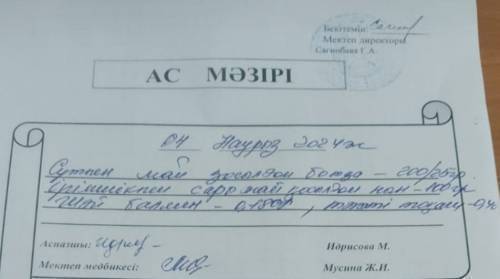 Бекітемін:
Мектеп директоры
Сагинбаева Г.А.
АС МӘЗІРІ
04 Наурыз 2024ж
Сүтпен май қосылған ботқа – 200/25гр.
Ірімшікпен сары май қосылған нан – 100гр
Шай балмен – 0,180гр, тәтті тоқаш –
Аспазшы: Идрисова М.
Мектеп медбикесі: Мусина Ж.И.